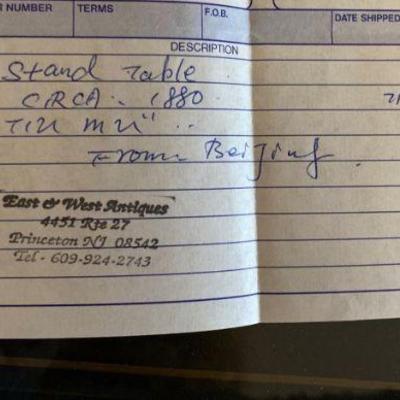 R NUMBER TERMS F.O.B. DATE SHIPPED
DESCRIPTION
Stand Table
CIRCA .. 1880
From Beijing .
East & West Antiques
4451 Rte 27
Princeton NJ 08542
Tel - 609-924-2743